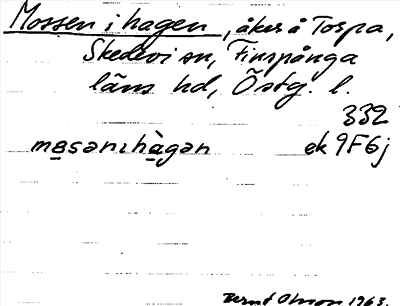 Mossen i hagen, åker å Torpa,
Skedevi sn, Finspånga
läns hd, Östg. l.
332
masanıhàgən ek 9F6j
Bernt Olsson 1963.